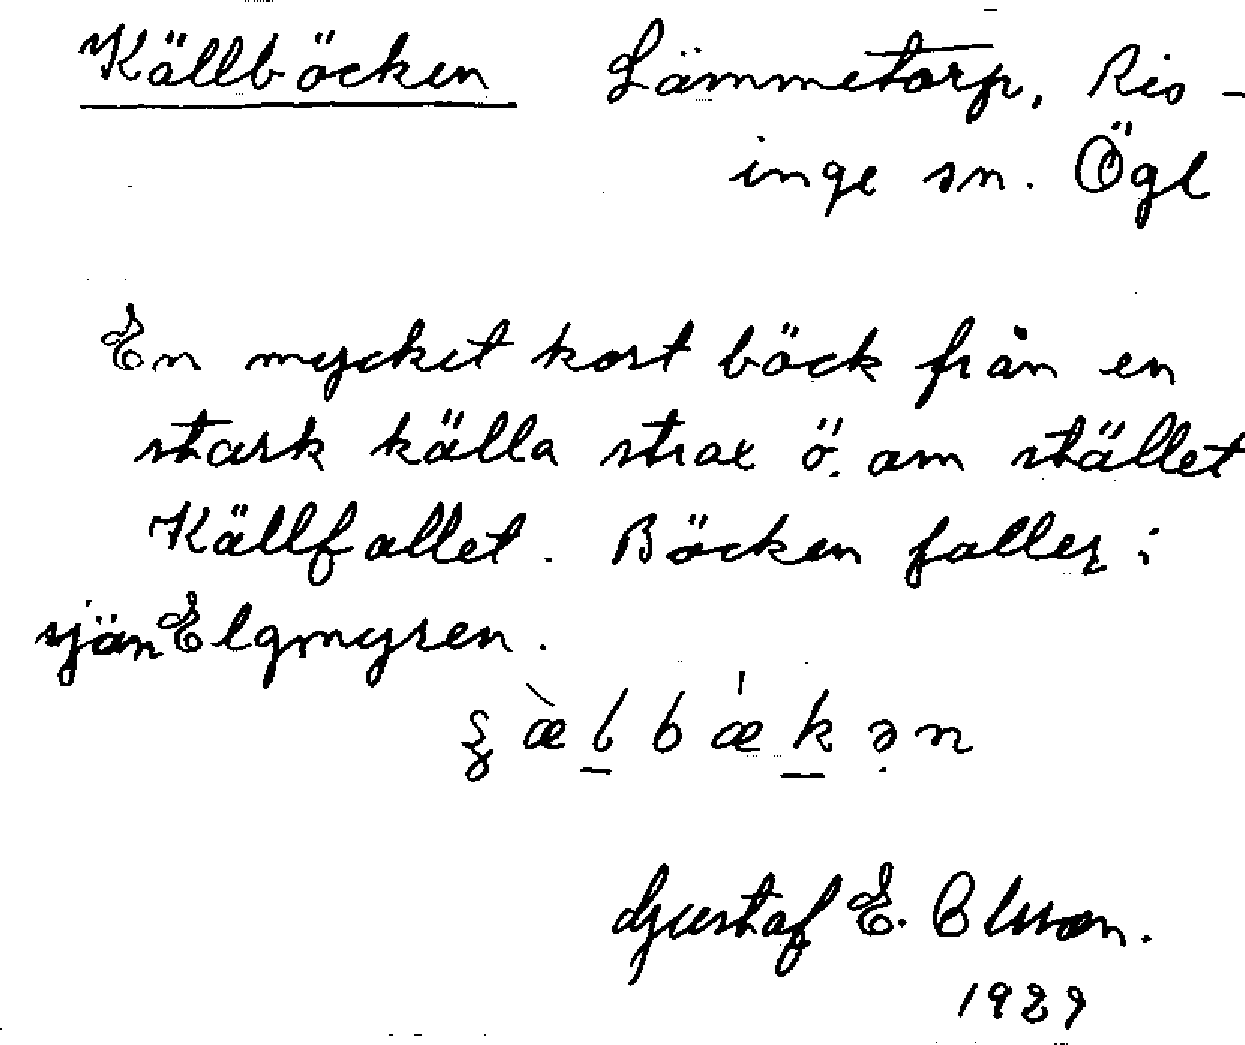 Källbäcken Lämmetorp, Ris-
inge sn. Ögl
En mycket kort bäck från en
stark källa strax ö. om stället
Källfallet. Bäcken faller i
sjön Elgmyren.
Gustaf E. Olsson.
1929